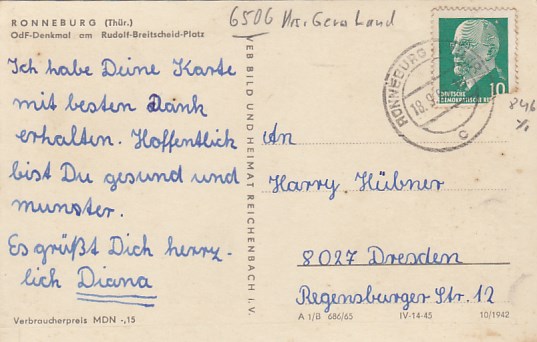 RONNEBURG (Thür.)
OdF-Denkmal am Rudolf-Breitscheid-Platz
6506 Krs. Gera Land
Ich habe Deine Karte
mit besten Dank
erhalten. Hoffentlich
bist Du gesund und
munster.
Es grüßt Dich herrz-
lich Diana
Verbraucherpreis MDN -,15
VEB BILD UND HEIMAT REICHENBACH I. V.
RONNEBURG
18.9.
c
10
DEUTSCHE
DEMOKRATISCHE RE
An
Harry Hübner
8027 Dresden
Regensburger Str. 12
A 1/B 686/65 IV-14-45 10/1942